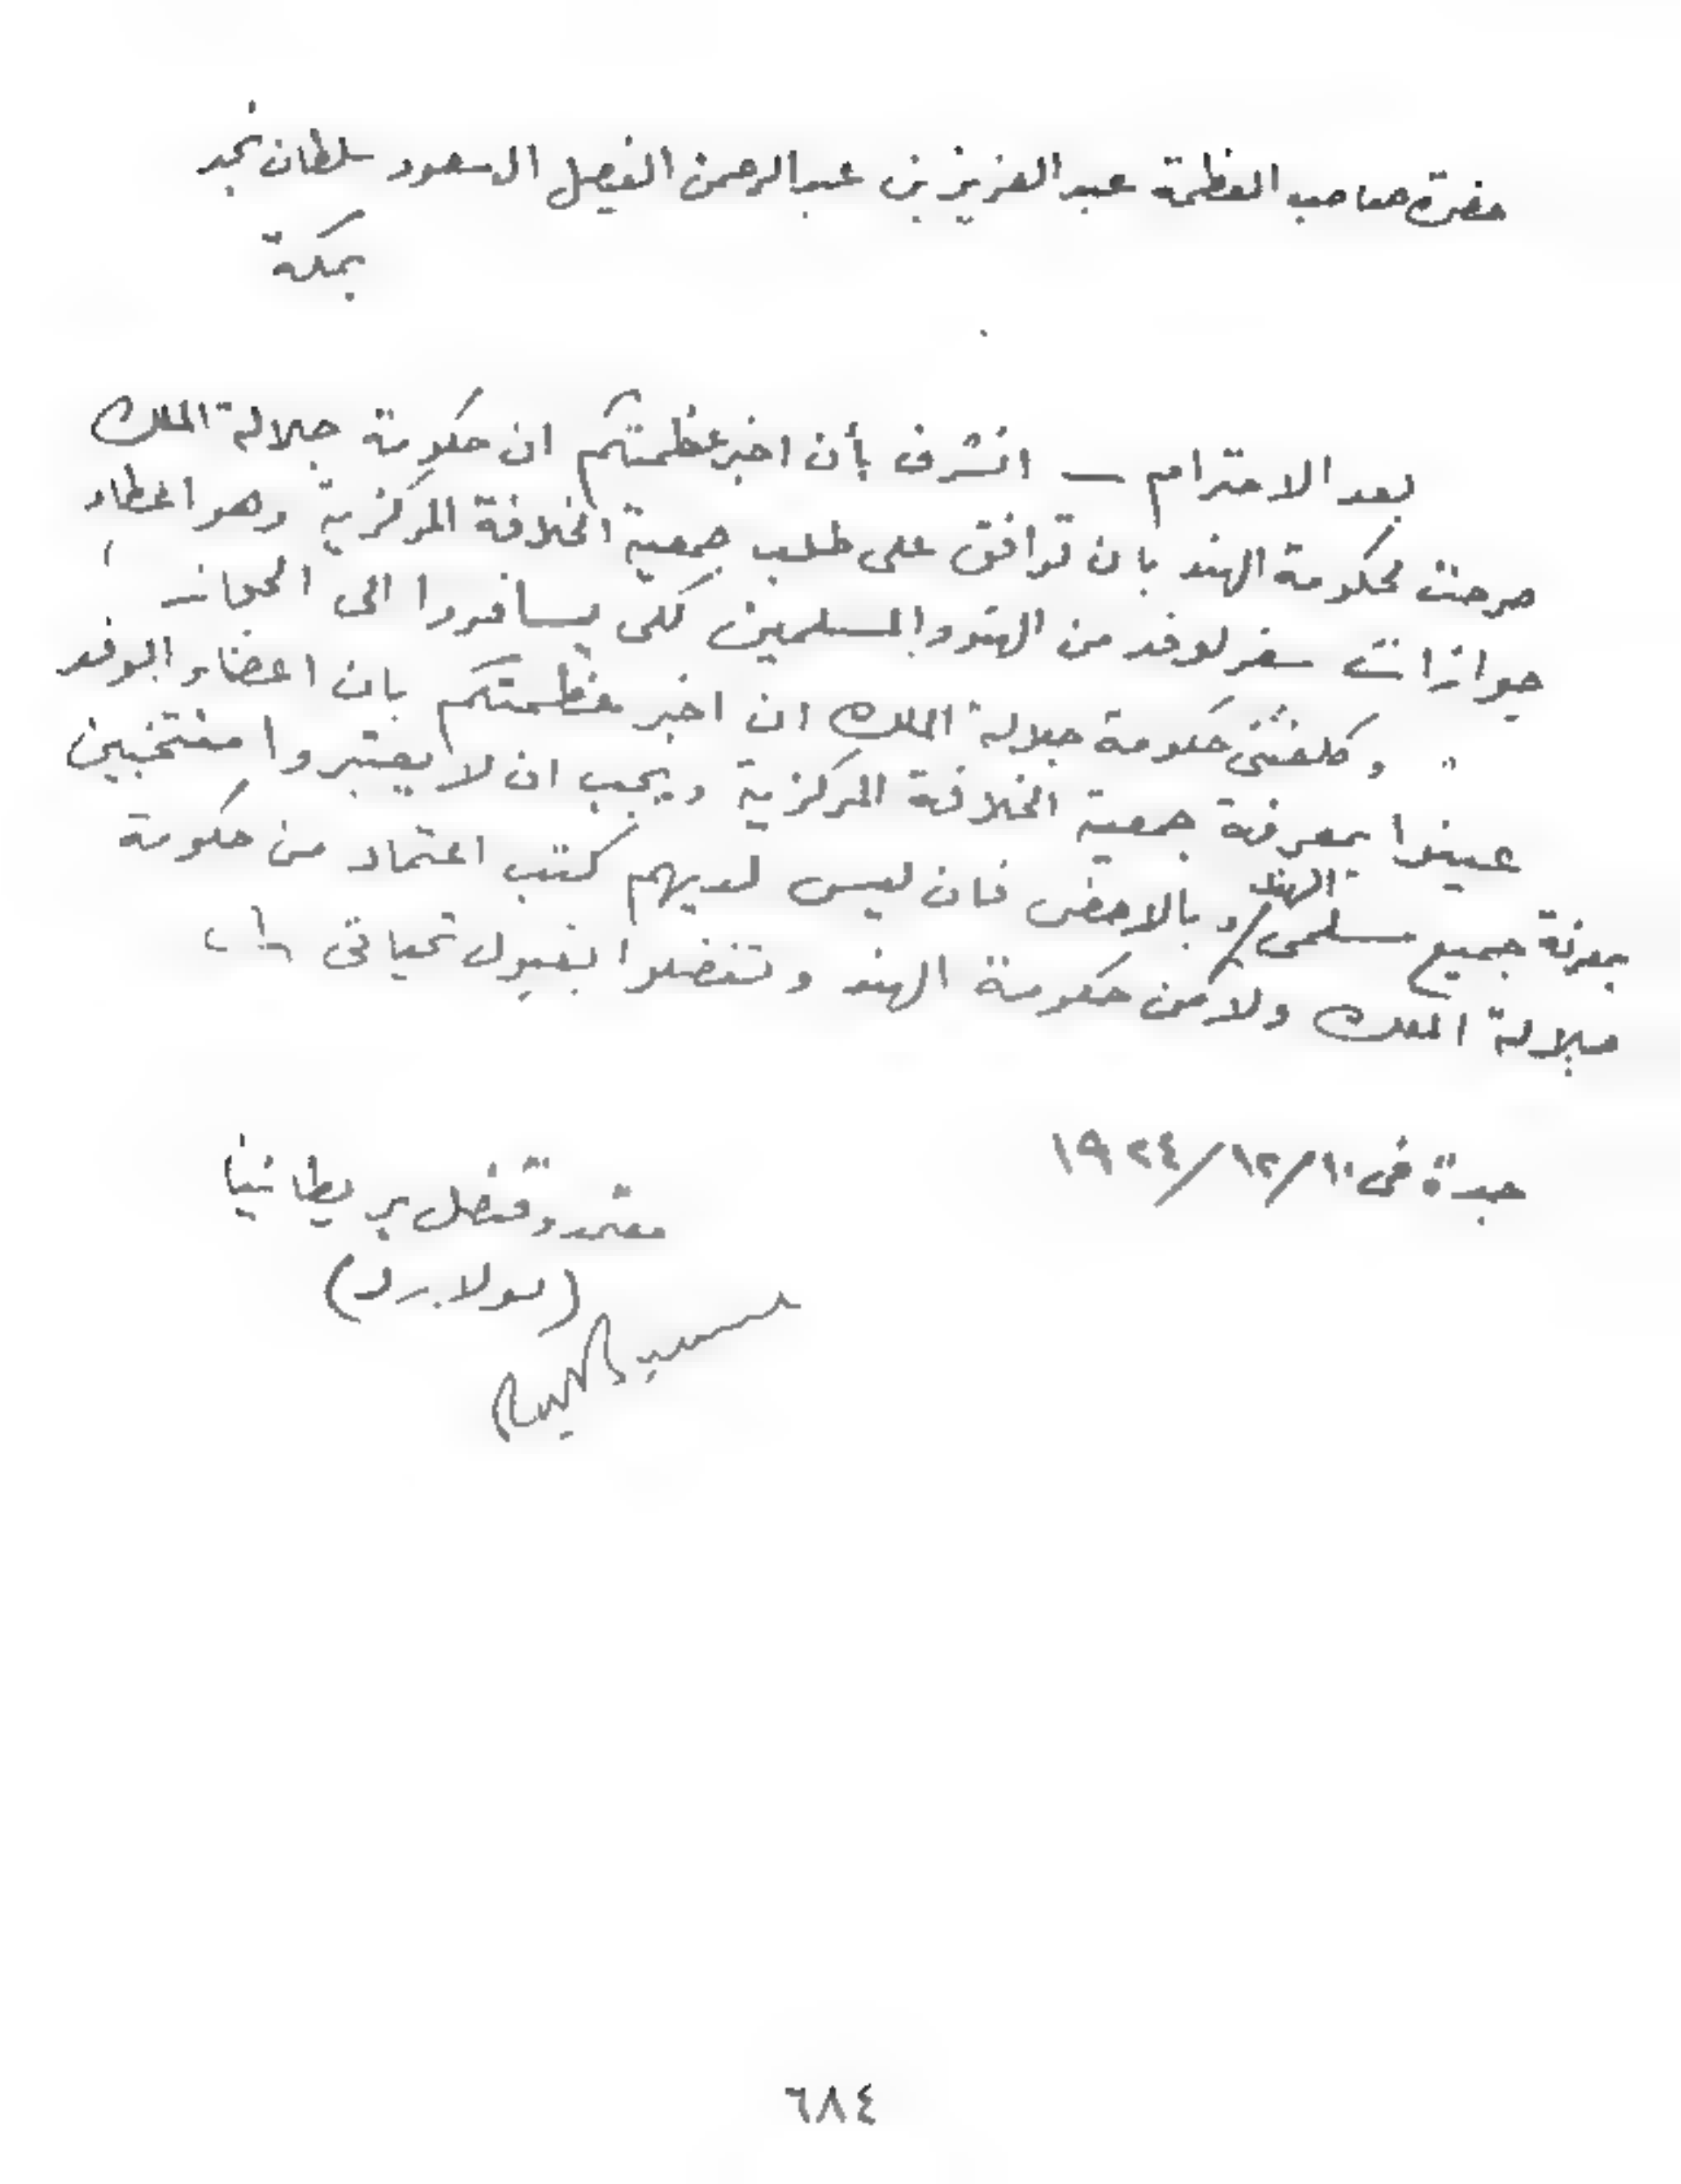 حضرة صاحب العظمة عبد العزيز بن عبد الرحمن الفيصل ال سعود سلطان نجد
بمكة
بعد الاحترام — اتشرف بأن اخبر عظمتكم ان حكومة جلالة الملك
صرحت لحكومة الهند بان توافق على طلب جمعية الخلافة المركزية وهو اعطاء
جوازات سفر لوفد من الهنود المسلمين لكى يسافروا الى الحجاز
وكلفتنى حكومة جلالة الملك ان اخبر عظمتكم بان اعضاء الوفد
عينوا بمعرفة جمعية الخلافة المركزية ويجب ان لا يعتبروا منتخبين
بمعرفة جميع مسلمى الهند وبالاخص فان ليس لديهم كتب اعتماد من حكومة
جلالة الملك ولا من حكومة الهند وتفضلوا بقبول تحياتى
جدة فى ١٠/١٢/١٩٢٤
معتمد وقنصل بريطانيا
(بولارد)
٦٨٤